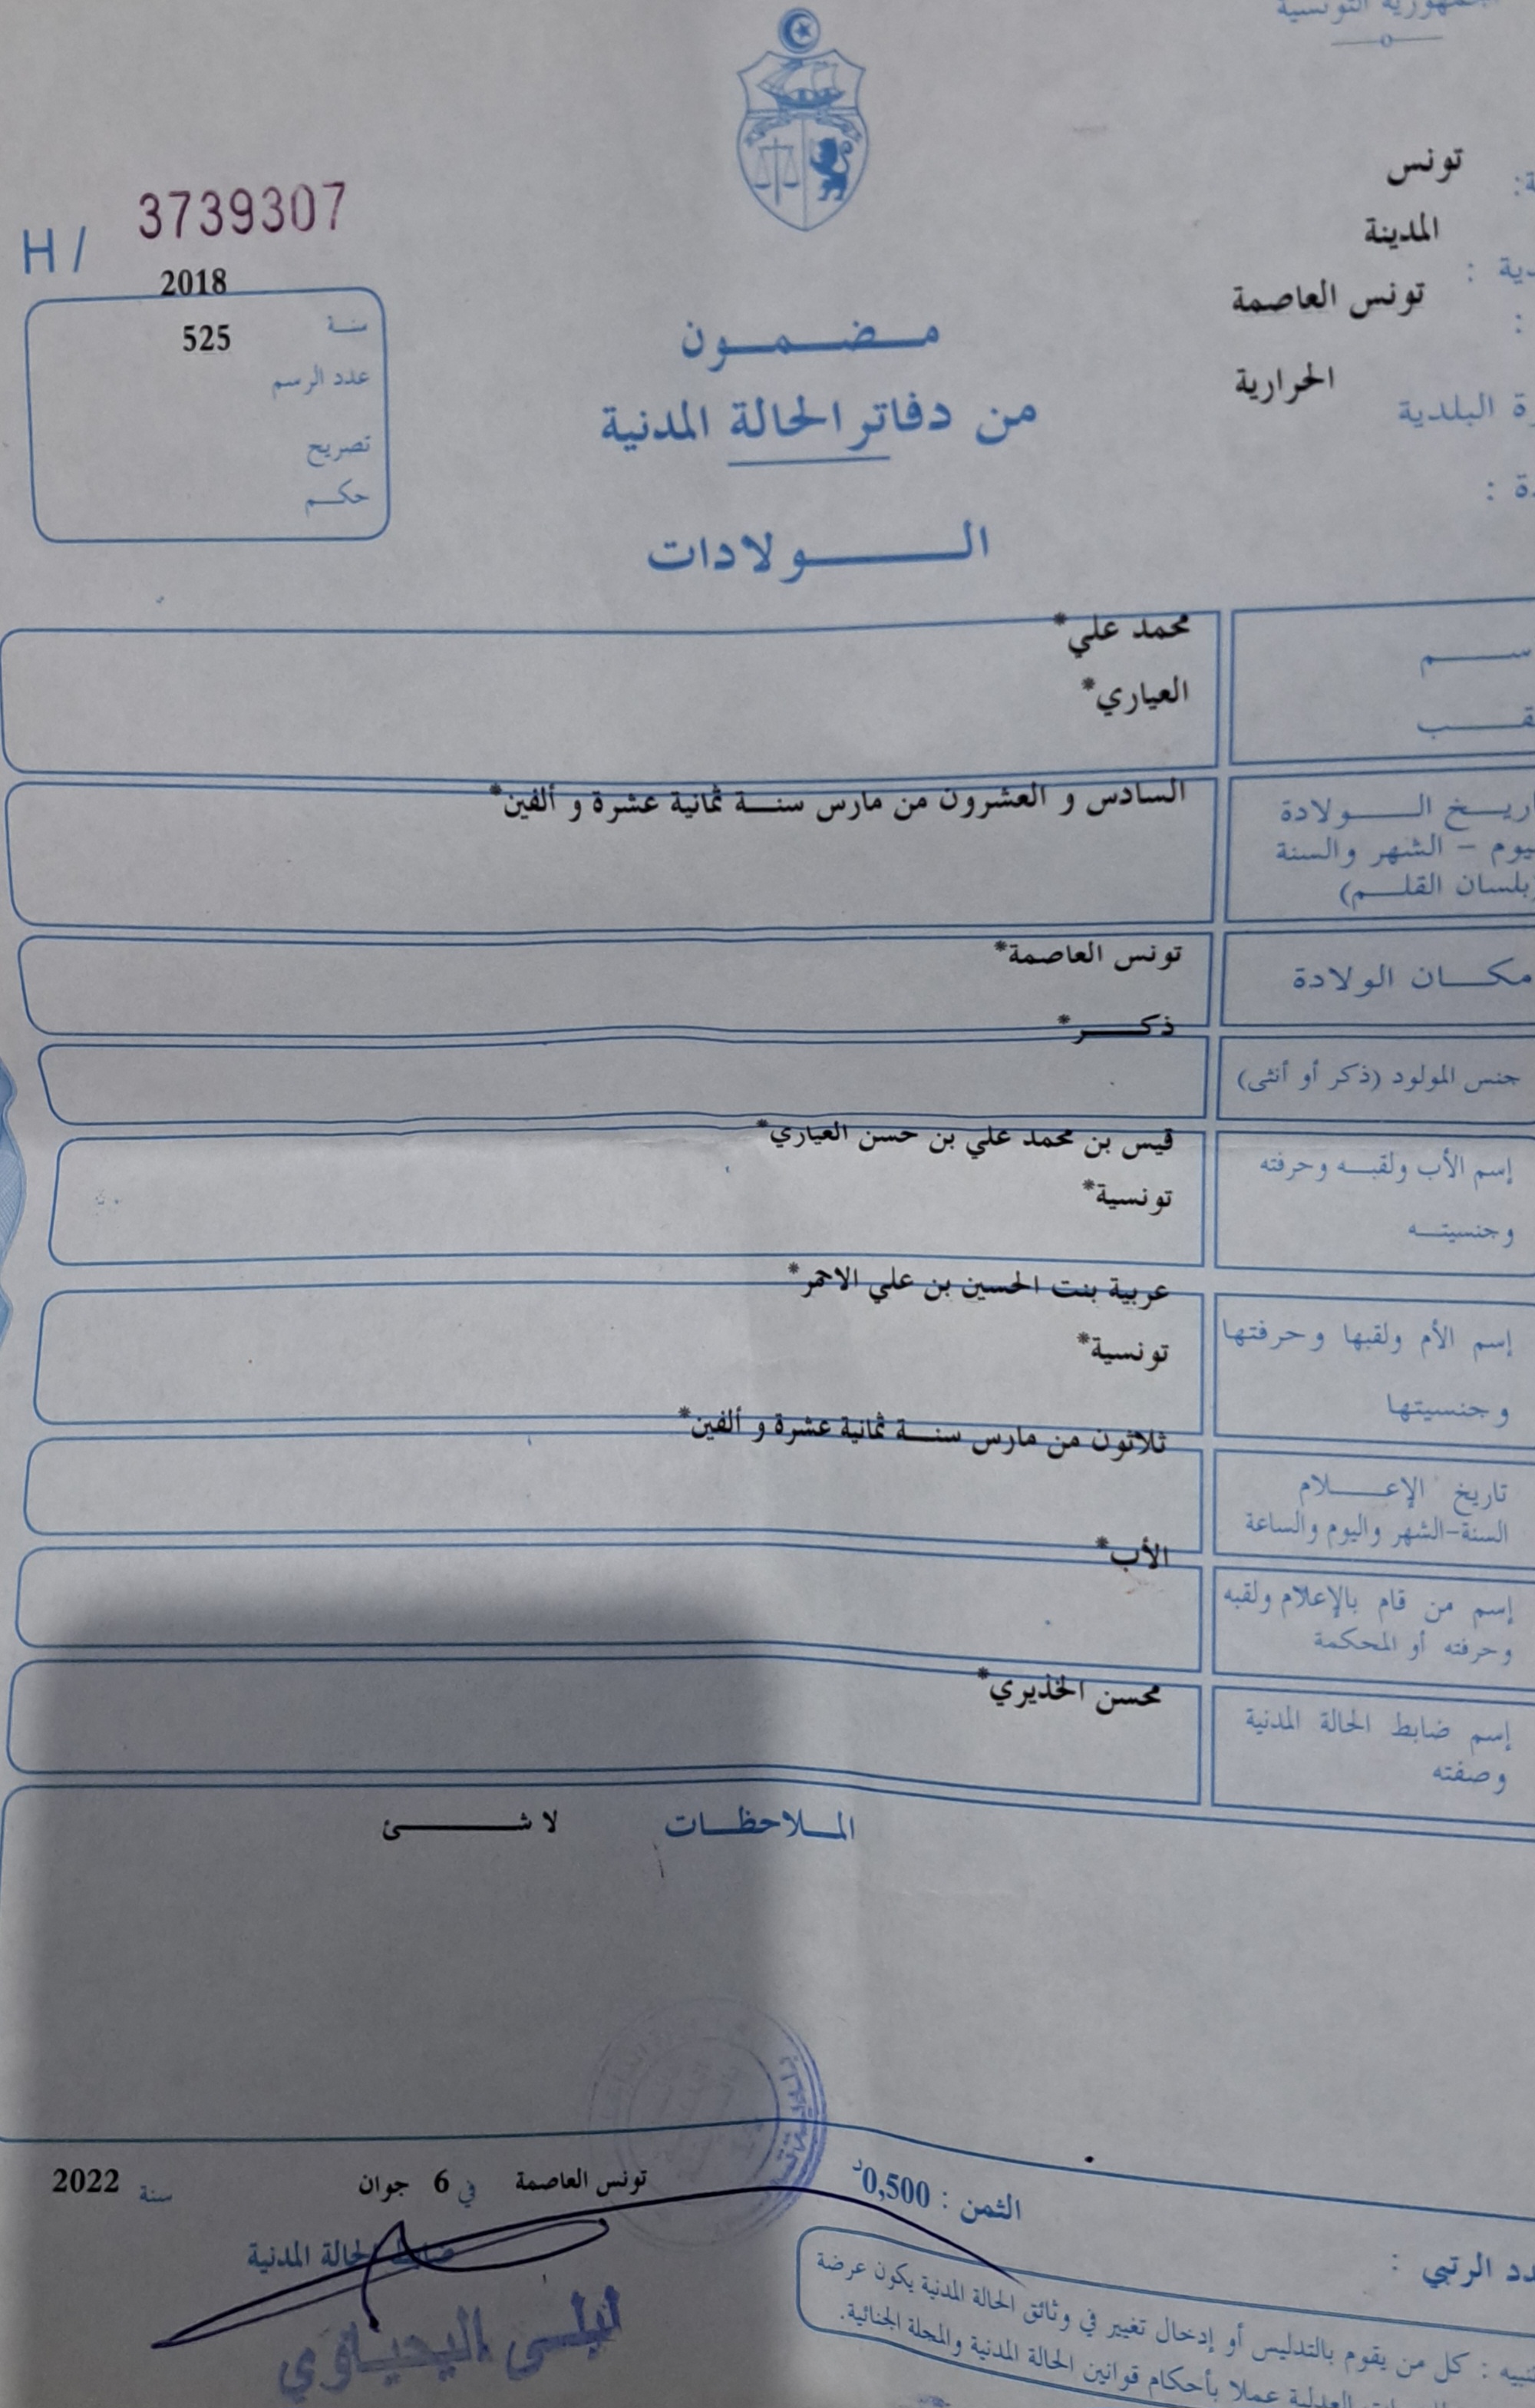 الجمهورية التونسية
تونس
المدينة
تونس العاصمة
الحرارية
البلدية
H / 3739307
2018
سنة 525
عدد الرسم
تصريح
حكم
مضمون
من دفاتر الحالة المدنية
الولادات
محمد علي*
العياري*
السادس و العشرون من مارس سنة ثمانية عشرة و ألفين*
الولادة
الشهر والسنة
بلسان القلم)
مكان الولادة
تونس العاصمة*
ذكر*
جنس المولود (ذكر أو أنثى)
قيس بن محمد علي بن حسن العياري*
إسم الأب ولقبه وحرفته
تونسية*
وجنسيته
عربية بنت الحسين بن علي الاحمر*
إسم الأم ولقبها وحرفتها
تونسية*
وجنسيتها
ثلاثون من مارس سنة ثمانية عشرة و ألفين*
تاريخ الإعلام
السنة-الشهر واليوم والساعة
الأب*
إسم من قام بالإعلام ولقبه
وحرفته أو المحكمة
محسن الخذيري*
إسم ضابط الحالة المدنية
وصفته
الملاحظات لا شئ
تونس العاصمة في 6 جوان سنة 2022
الثمن : 0,500د
ضابط الحالة المدنية
الرتبي :
ليلى اليحياوي
: كل من يقوم بالتدليس أو إدخال تغيير في وثائق الحالة المدنية يكون عرضة
العدلية عملا بأحكام قوانين الحالة المدنية والمجلة الجنائية.